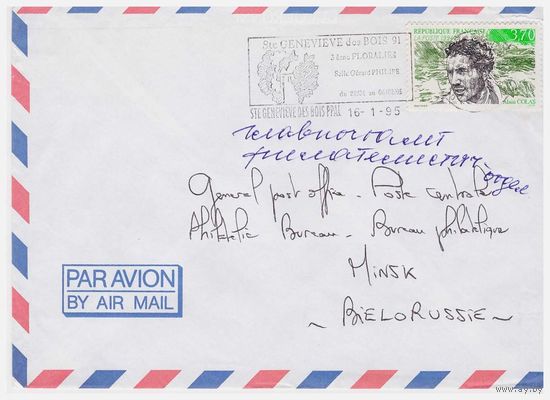 Ste GENEVIEVE des BOIS 91
3ème FLORALIES
Salle Gérard PHILIPE
du
au
STE GENEVIEVE DES BOIS PPAL 16-1-95
REPUBLIQUE FRANÇAISE 3,70
LA POSTE 1994
Alain COLAS
главпочтамт
филателистич
отдел
General post office - Poste centrale
Philatelic Bureau - Bureau philatélique
MINSK
~ BIELORUSSIE ~
PAR AVION
BY AIR MAIL
www.ay.by